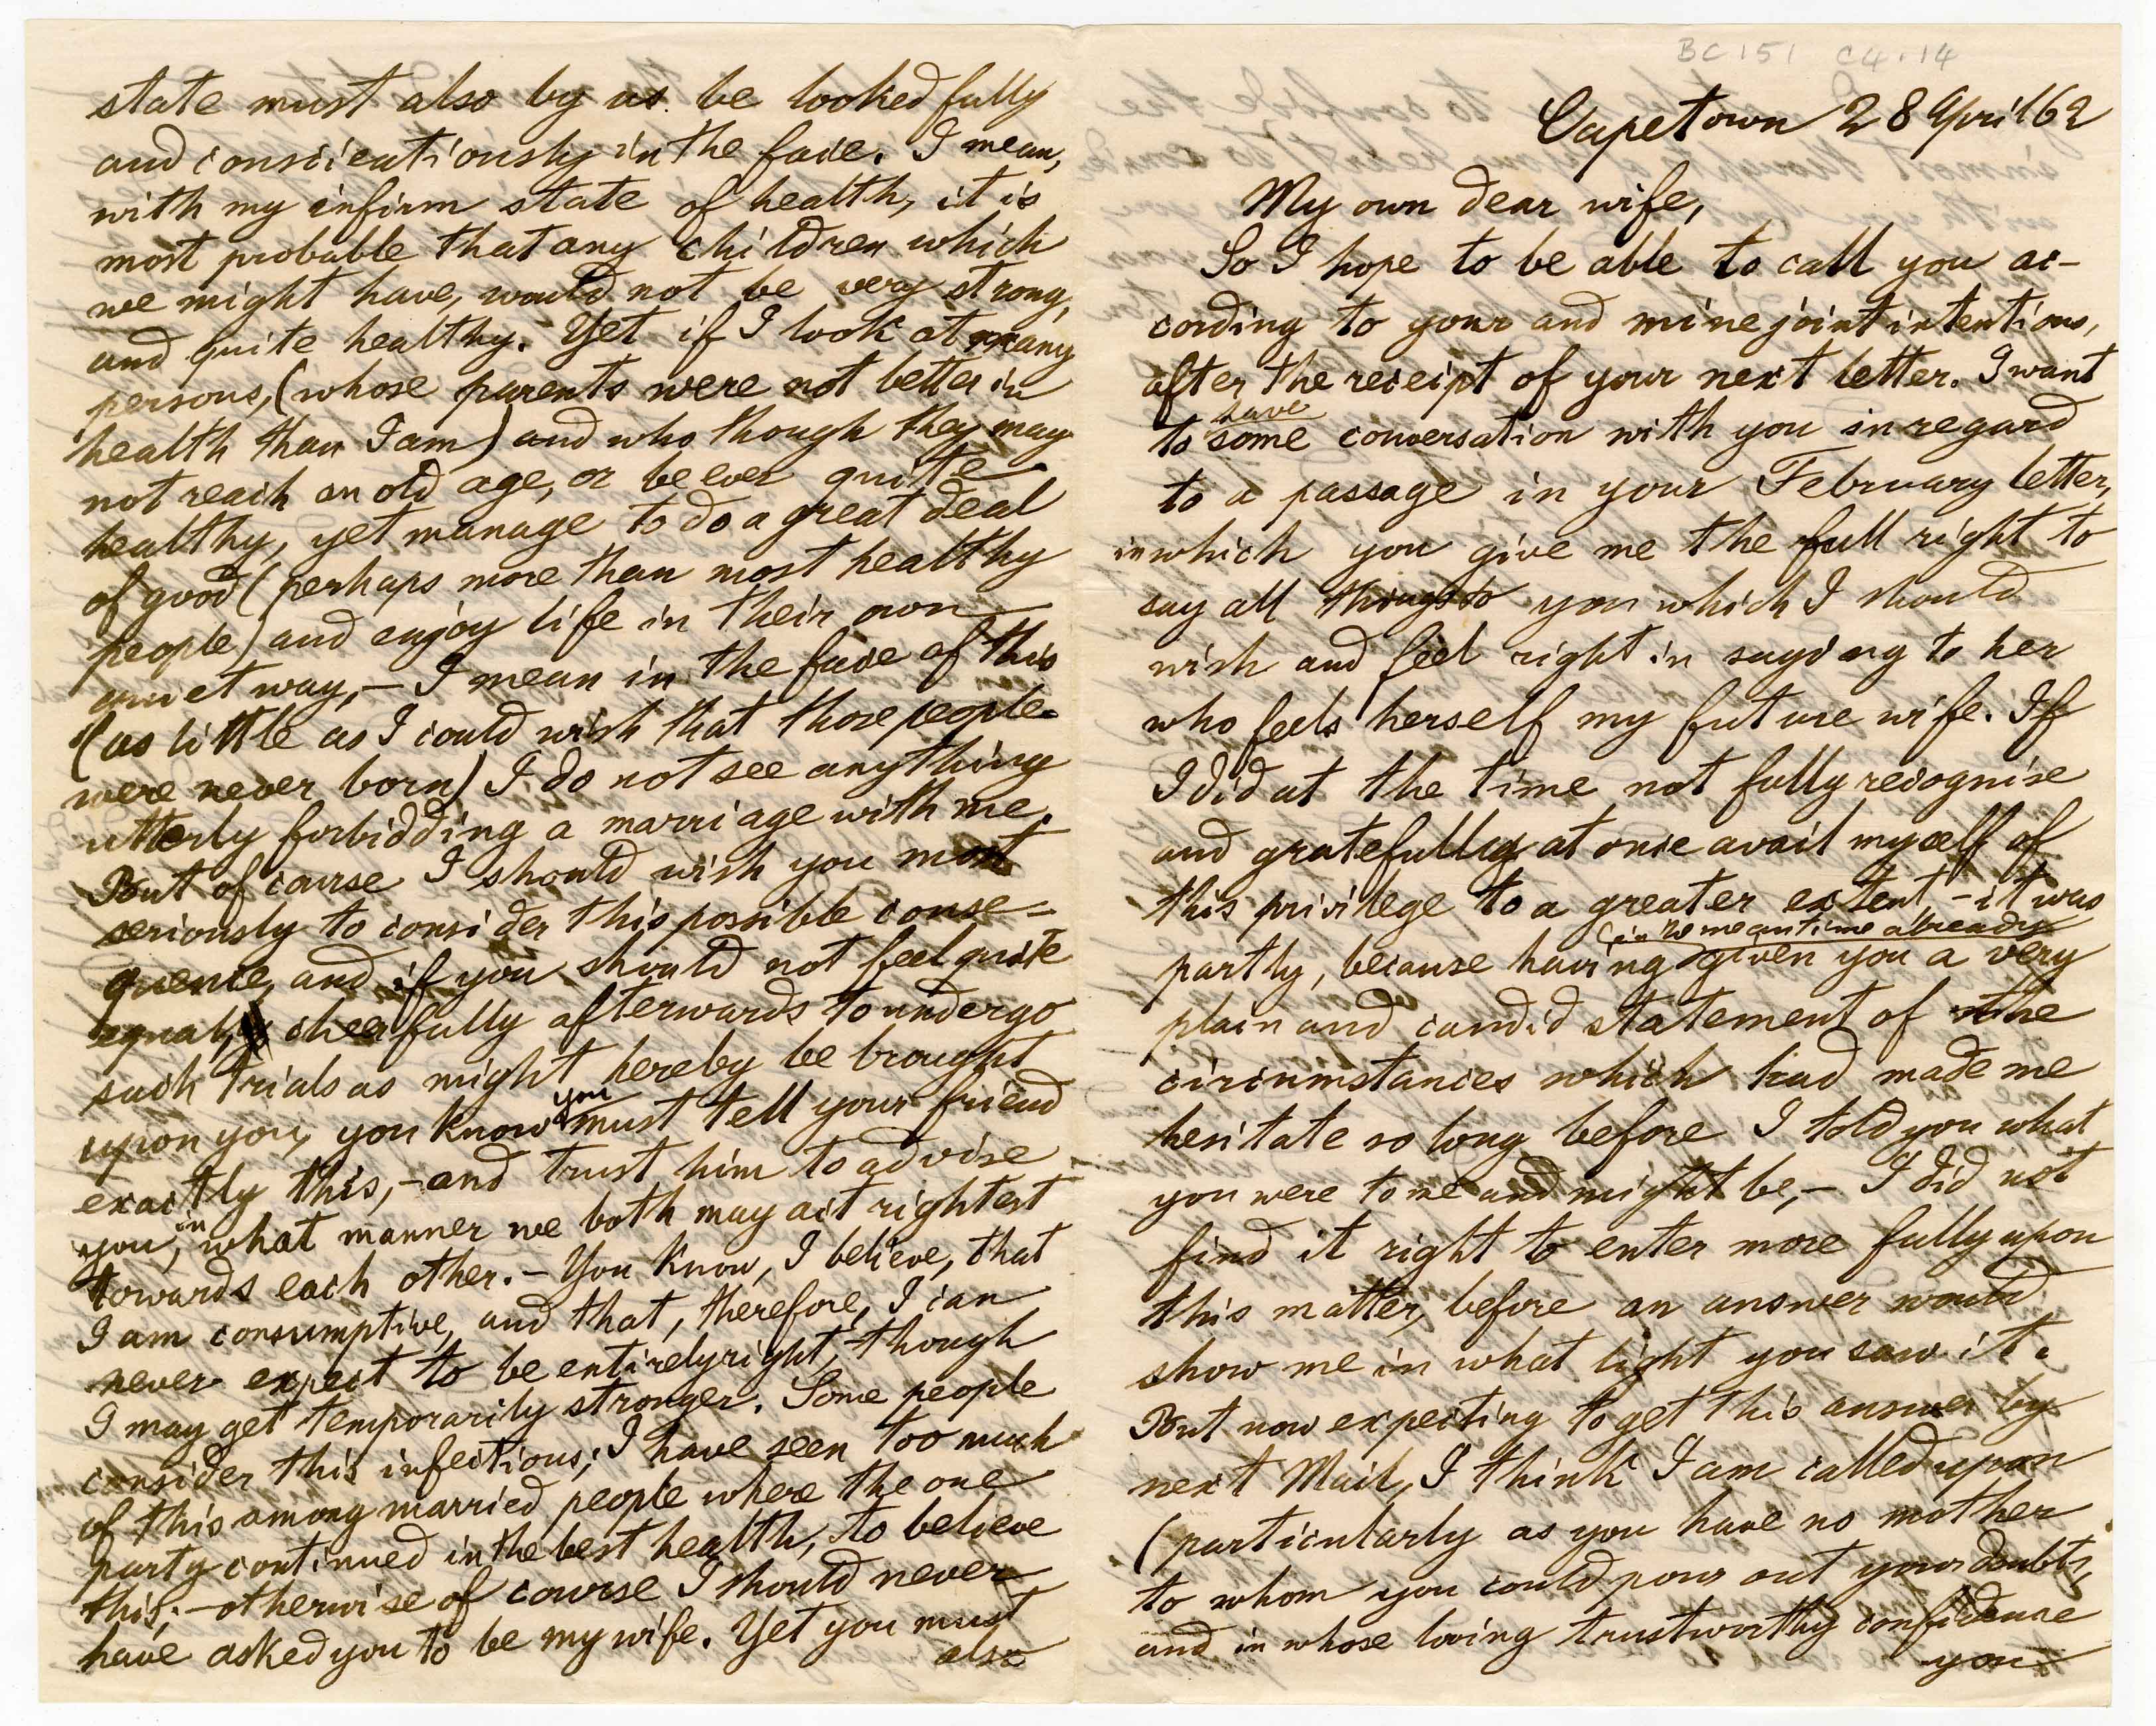 BC 151 C4.14
Capetown 28 April 62
My own dear wife,
So I hope to be able to call you ac-
cording to your and mine joint intentions,
after the receipt of your next letter. I want
have
to some conversation with you in regard
to a passage in your February letter,
in which you give me the full right to
say all things to you which I should
wish and feel right in saying to her
who feels herself my future wife. If
I did at the time not fully recognise
and gratefully at once avail myself of
this privilege to a greater extent, - it was
(in the meantime already
partly, because having given you a very
plain and candid statement of the
circumstances which had made me
hesitate so long before I told you what
you were to me and might be, - I did not
find it right to enter more fully upon
this matter, before an answer would
show me in what light you saw it.
But now expecting to get this answer by
next Mail, I think I am called upon
(particularly as you have no mother
to whom you could pour out your doubts,
and in whose loving trustworthy confidence
you
state must also by us be looked fully
and conscientiously in the face. I mean,
with my infirm state of health, it is
most probable that any children which
we might have, would not be very strong,
and quite healthy. Yet if I look at many
persons, (whose parents were not better in
health than I am) and who though they may
not reach an old age, or be ever quite
healthy, yet manage to do a great deal
of good (perhaps more than most healthy
people) and enjoy life in their own
quiet way, - I mean in the face of this
(as little as I could wish that those people
were never born) I do not see anything
utterly forbidding a marriage with me.
But of course I should wish you most
seriously to consider this possible conse-
quence, and if you should not feel quite
equal, cheerfully afterwards to undergo
such trials as might hereby be brought
you
upon you, you know must tell your friend
exactly this, - and trust him to advise
in
you, what manner we both may act rightest
towards each other. - You know, I believe, that
I am consumptive, and that, therefore, I can
never expect to be entirely right, though
I may get temporarily stronger. Some people
consider this infectious; I have seen too much
of this among married people where the one
party continued in the best health, to believe
this; - otherwise of course I should never
have asked you to be my wife. Yet you must
also